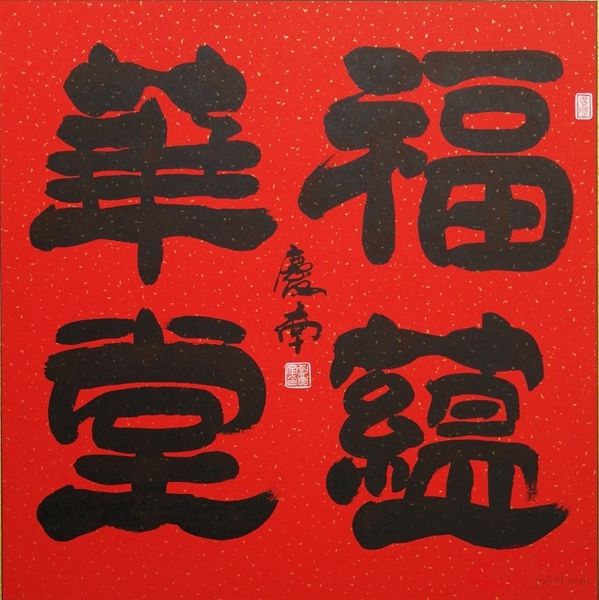 福蘊
華堂
慶南